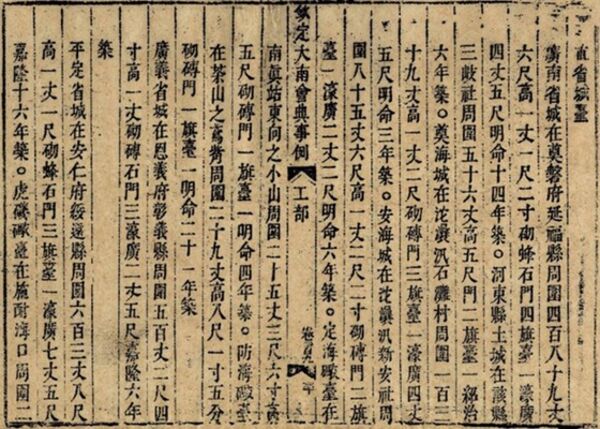 直省城臺
廣南省城在奠磐府延福縣周圍四百八十九丈
六尺高一丈一尺二寸砌蜂石門四旗臺一濠廣
四丈五尺明命十四年築。河東縣土城在該縣
三岐社周圍五十六丈高五尺門二旗臺一紹治
六年築。奠海城在沱㶞汛石灘村周圍一百三
十九丈高一丈二尺砌磚門三旗臺一濠廣四丈
五尺明命三年築。安海城在沱㶞汛新安社周
圍八十五丈六尺高一丈二尺二寸砌磚門二旗
臺一濠廣二丈二尺明命六年築。定海礮臺在
欽定大南會典事例 工部
南眞站東向之小山周圍二十五丈三尺六寸高
五尺砌磚門一旗臺一明命四年築。防海礮臺
在茶山之高嶺周圍二十九丈高八尺一寸五分
砌磚門一旗臺一明命二十一年築
廣義省城在思義府彰義縣周圍五百丈二尺四
寸高一丈砌磚石門三濠廣二丈五尺嘉隆六年
築
平定省城在安仁府綏遠縣周圍六百三丈八尺
高一丈一尺砌蜂石門三旗臺一濠廣七丈五尺
嘉隆十六年築。虎磯礮臺在施耐海口周圍二